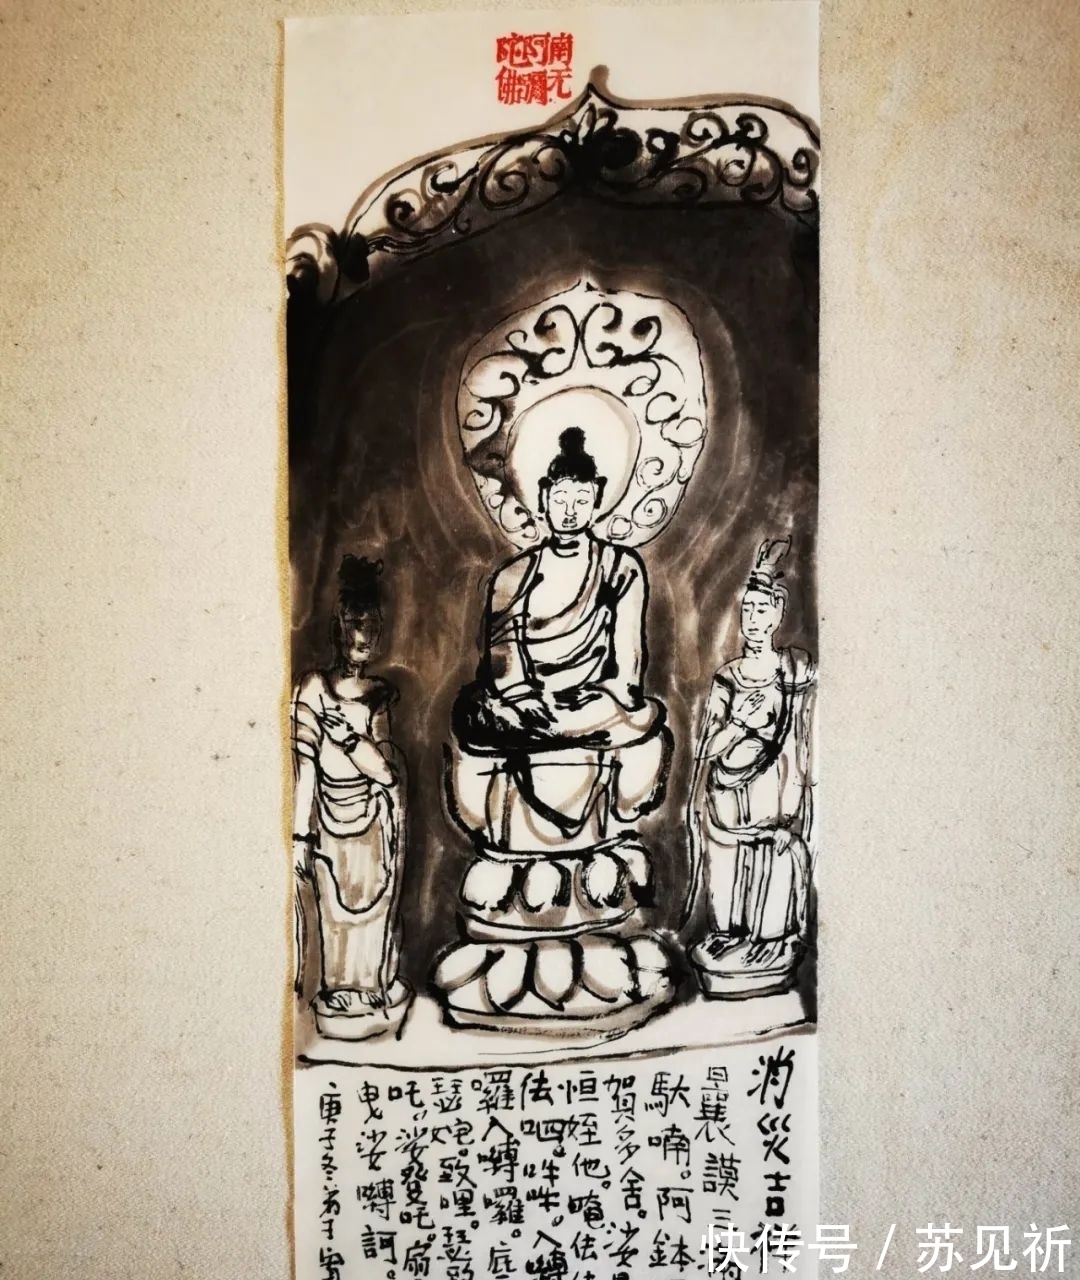 南无
阿彌
陀佛
消災吉祥
曩謨三滿
馱喃。阿鉢
賀多舍。娑
恒姪他。唵佉
佉呬。吽吽。入嚩
囉入嚩囉。底
瑟 致哩。瑟
吒。娑發吒。扇
曳娑嚩訶。
庚子冬弟子
快传号 / 苏见祈